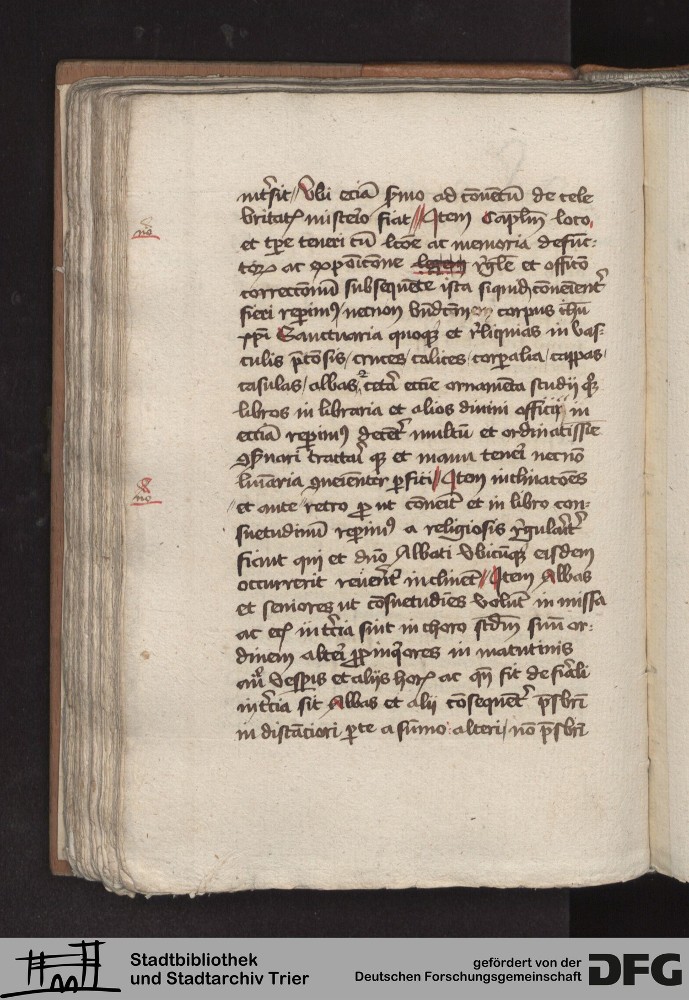 intersit // Ubi eciam sermo ad conventum de cele
britatis misterio fiat // Item Capitulum loco
et tempore teneri cum lectione ac memoria defunc-
torum ac exposicione regule et officio
correctionum subsequente ista siquidem convenienter
fieri reperimus / necnon corpus
Sanctuaria quoque et reliquias in vas-
culis preciosis / cruces / calices / corporalia / cappas /
casulas / albas / et cetera ecclesie ornamenta studii quoque
libros in libraria et alios divini officii in
ecclesia reperimus decenter multum et ordinatissime
conservari tractari que et manu teneri necnon
luminaria convenienter perfici // Item inclinationes
et ante / retro prout convenit et in libro con-
suetudinum reperimus a religiosis regulariter
fiant qui et domino Abbati ubicumque eisdem
occurrerit reverenter inclinent // Item Abbas
et seniores ut consuetudines volunt in missa
ac eciam in tercia sint in choro secundum suum or-
dinem altari propinquiores in matutinis
autem vesperis et aliis horis ac quando fit de feriali
in tercia sit Abbas et alii consequenter presbiteri
in distanciori parte a summo altari / non presbiteri
Stadtbibliothek
und Stadtarchiv Trier
gefördert von der
Deutschen Forschungsgemeinschaft
DFG